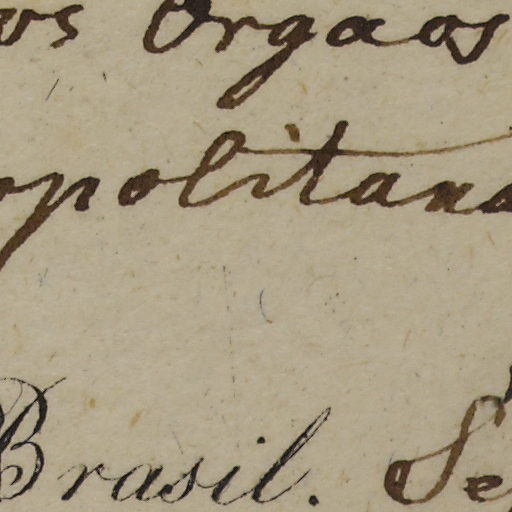 os Orgaos
opolitana
Brasil. Se